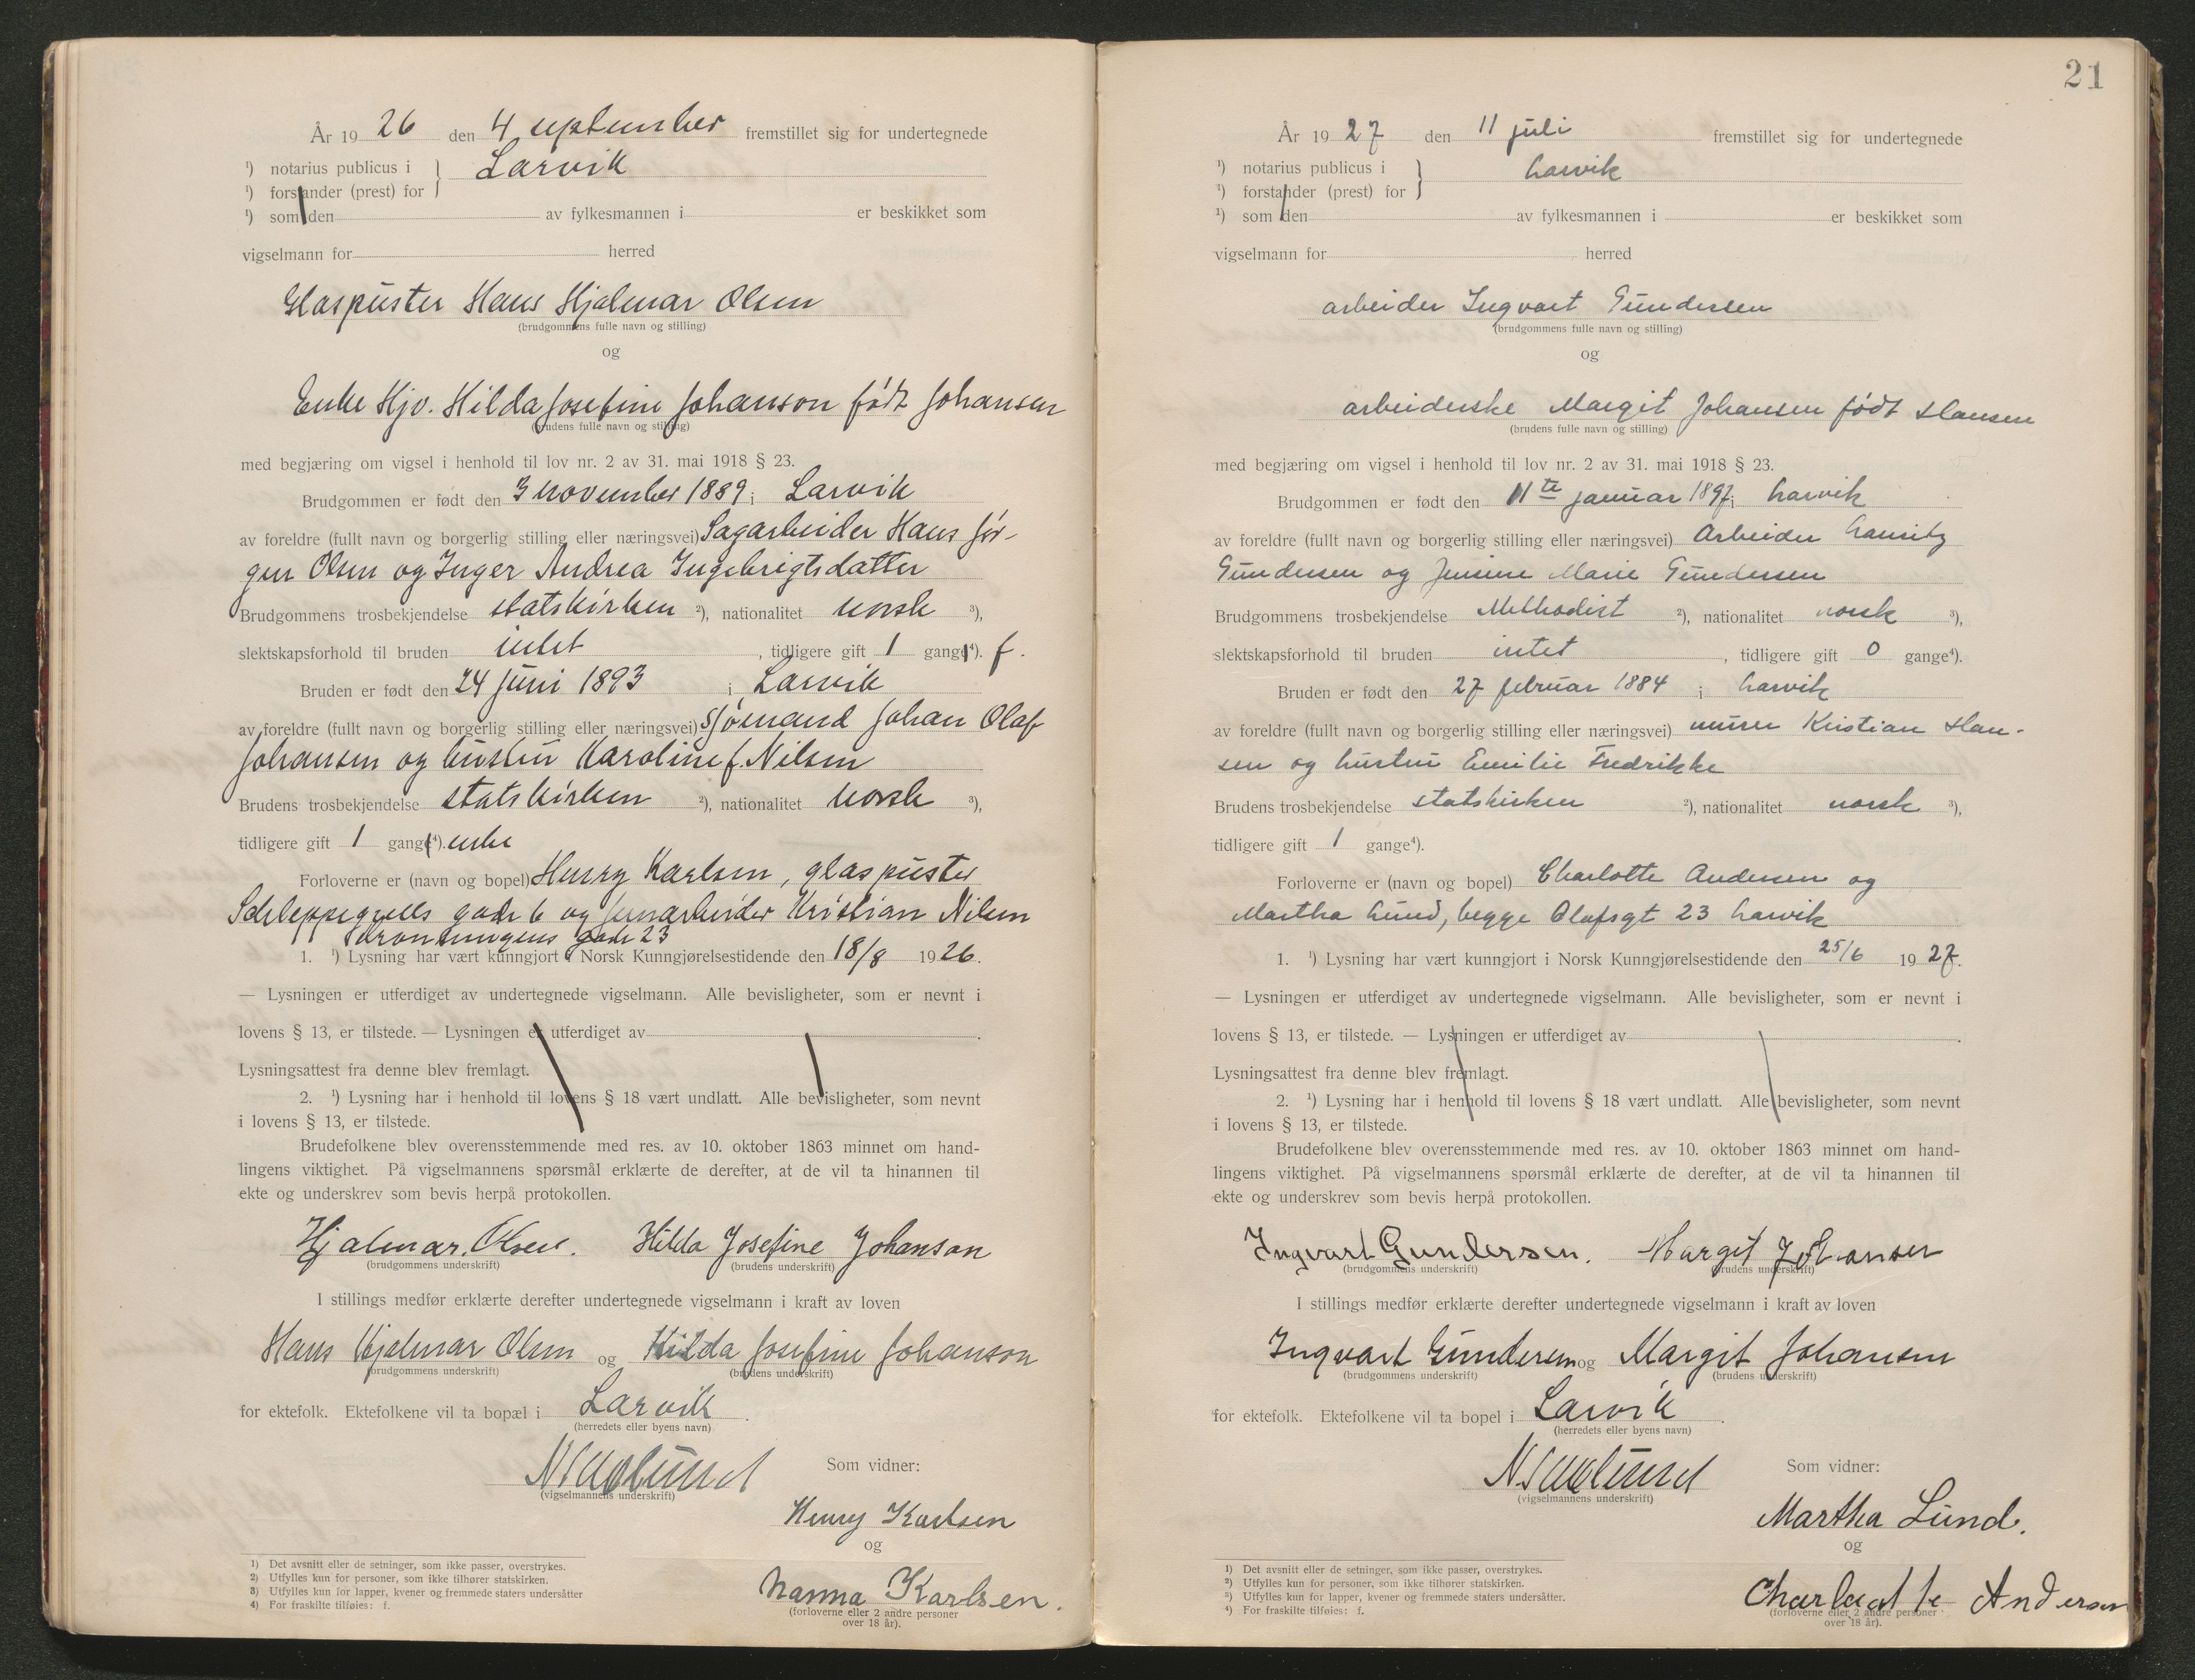 År 19 26 den 4 september fremstillet sig for undertegnede
¹) notarius publicus i } Larvik
¹) forstander (prest) for
¹) som den av fylkesmannen i er beskikket som
vigselmann for herred
Glaspuster Hans Hjalmar Olsen
(brudgommens fulle navn og stilling)
og
Enke Hjv. Hilda Josefine Johanson født Johansen
(brudens fulle navn og stilling)
med begjæring om vigsel i henhold til lov nr. 2 av 31. mai 1918 § 23.
Brudgommen er født den 3 november 1889 i Larvik
av foreldre (fullt navn og borgerlig stilling eller næringsvei) Sagarbeider Hans Jør-
gen Olsen og Inger Andrea Ingebrigtsdatter
Brudgommens trosbekjendelse statskirken ²), nationalitet norsk ³),
slektskapsforhold til bruden intet , tidligere gift 1 gang ⁴). f.
Bruden er født den 24 juni 1893 i Larvik
av foreldre (fullt navn og borgerlig stilling eller næringsvei) Sjømand Johan Olaf
Johansen og hustru Karoline f. Nilsen
Brudens trosbekjendelse statskirken ²), nationalitet norsk ³),
tidligere gift 1 gang ⁴). enke
Forloverne er (navn og bopel) Henry Karlsen, glaspuster
Schleppegrells gade 6 og jernarbeider Kristian Nilsen
Dronningens gade 23
1. ¹) Lysning har vært kunngjort i Norsk Kunngjørelsestidende den 18/8 19 26.
— Lysningen er utferdiget av undertegnede vigselmann. Alle bevisligheter, som er nevnt i
lovens § 13, er tilstede. — Lysningen er utferdiget av .
Lysningsattest fra denne blev fremlagt.
2. ¹) Lysning har i henhold til lovens § 18 vært undlatt. Alle bevisligheter, som nevnt
i lovens § 13, er tilstede.
Brudefolkene blev overensstemmende med res. av 10. oktober 1863 minnet om hand-
lingens viktighet. På vigselmannens spørsmål erklærte de derefter, at de vil ta hinannen til
ekte og underskrev som bevis herpå protokollen.
Hjalmar. Olsen. Hilda Josefine Johanson
(brudgommens underskrift) (brudens underskrift)
I stillings medfør erklærte derefter undertegnede vigselmann i kraft av loven
Hans Hjalmar Olsen og Hilda Josefine Johanson
(brudgommens underskrift) (brudens underskrift)
for ektefolk. Ektefolkene vil ta bopæl i Larvik .
(herredets eller byens navn)
Som vidner:
(vigselmannens underskrift)
Henry Karlsen
og
Nanna Karlsen.
(forloverne eller 2 andre personer
over 18 år).
1) Det avsnitt eller de setninger, som ikke passer, overstrykes.
2) Utfylles kun for personer, som ikke tilhører statskirken.
3) Utfylles kun for lapper, kvener og fremmede staters undersåtter
4) For fraskilte tilføies: f.
21
År 19 27 den 11 juli fremstillet sig for undertegnede
¹) notarius publicus i } Larvik
¹) forstander (prest) for
¹) som den av fylkesmannen i er beskikket som
vigselmann for herred
arbeider Ingvart Gundersen
(brudgommens fulle navn og stilling)
og
arbeiderske Margit Johansen født Hansen
(brudens fulle navn og stilling)
med begjæring om vigsel i henhold til lov nr. 2 av 31. mai 1918 § 23.
Brudgommen er født den 11te januar 1897 i Larvik
av foreldre (fullt navn og borgerlig stilling eller næringsvei) Arbeider Lauritz
Gundersen og Jensine Marie Gundersen
Brudgommens trosbekjendelse Methodist ²), nationalitet norsk ³),
slektskapsforhold til bruden intet , tidligere gift 0 gange⁴).
Bruden er født den 27 februar 1884 i Larvik
av foreldre (fullt navn og borgerlig stilling eller næringsvei) murer Kristian Han-
sen og hustru Emilie Fredrikke
Brudens trosbekjendelse statskirken ²), nationalitet norsk ³),
tidligere gift 1 gange⁴).
Forloverne er (navn og bopel) Charlotte Andersen og
Martha Lund, begge Olafsgt 23 Larvik
1. ¹) Lysning har vært kunngjort i Norsk Kunngjørelsestidende den 25/6 19 27.
— Lysningen er utferdiget av undertegnede vigselmann. Alle bevisligheter, som er nevnt i
lovens § 13, er tilstede. — Lysningen er utferdiget av .
Lysningsattest fra denne blev fremlagt.
2. ¹) Lysning har i henhold til lovens § 18 vært undlatt. Alle bevisligheter, som nevnt
i lovens § 13, er tilstede.
Brudefolkene blev overensstemmende med res. av 10. oktober 1863 minnet om hand-
lingens viktighet. På vigselmannens spørsmål erklærte de derefter, at de vil ta hinannen til
ekte og underskrev som bevis herpå protokollen.
Ingvart Gundersen. Margit Johansen
(brudgommens underskrift) (brudens underskrift)
I stillings medfør erklærte derefter undertegnede vigselmann i kraft av loven
Ingvart Gundersen og Margit Johansen
(brudgommens underskrift) (brudens underskrift)
for ektefolk. Ektefolkene vil ta bopel i Larvik .
(herredets eller byens navn)
Som vidner:
(vigselmannens underskrift)
Martha Lund.
og
Charlaatte Andersen
(forloverne eller 2 andre personer
over 18 år).
1) Det avsnitt eller de setninger, som ikke passer, overstrykes.
²) Utfylles kun for personer, som ikke tilhører statskirken.
³) Utfylles kun for lapper, kvener og fremmede staters undersåtter.
⁴) For fraskilte tilføies: f.